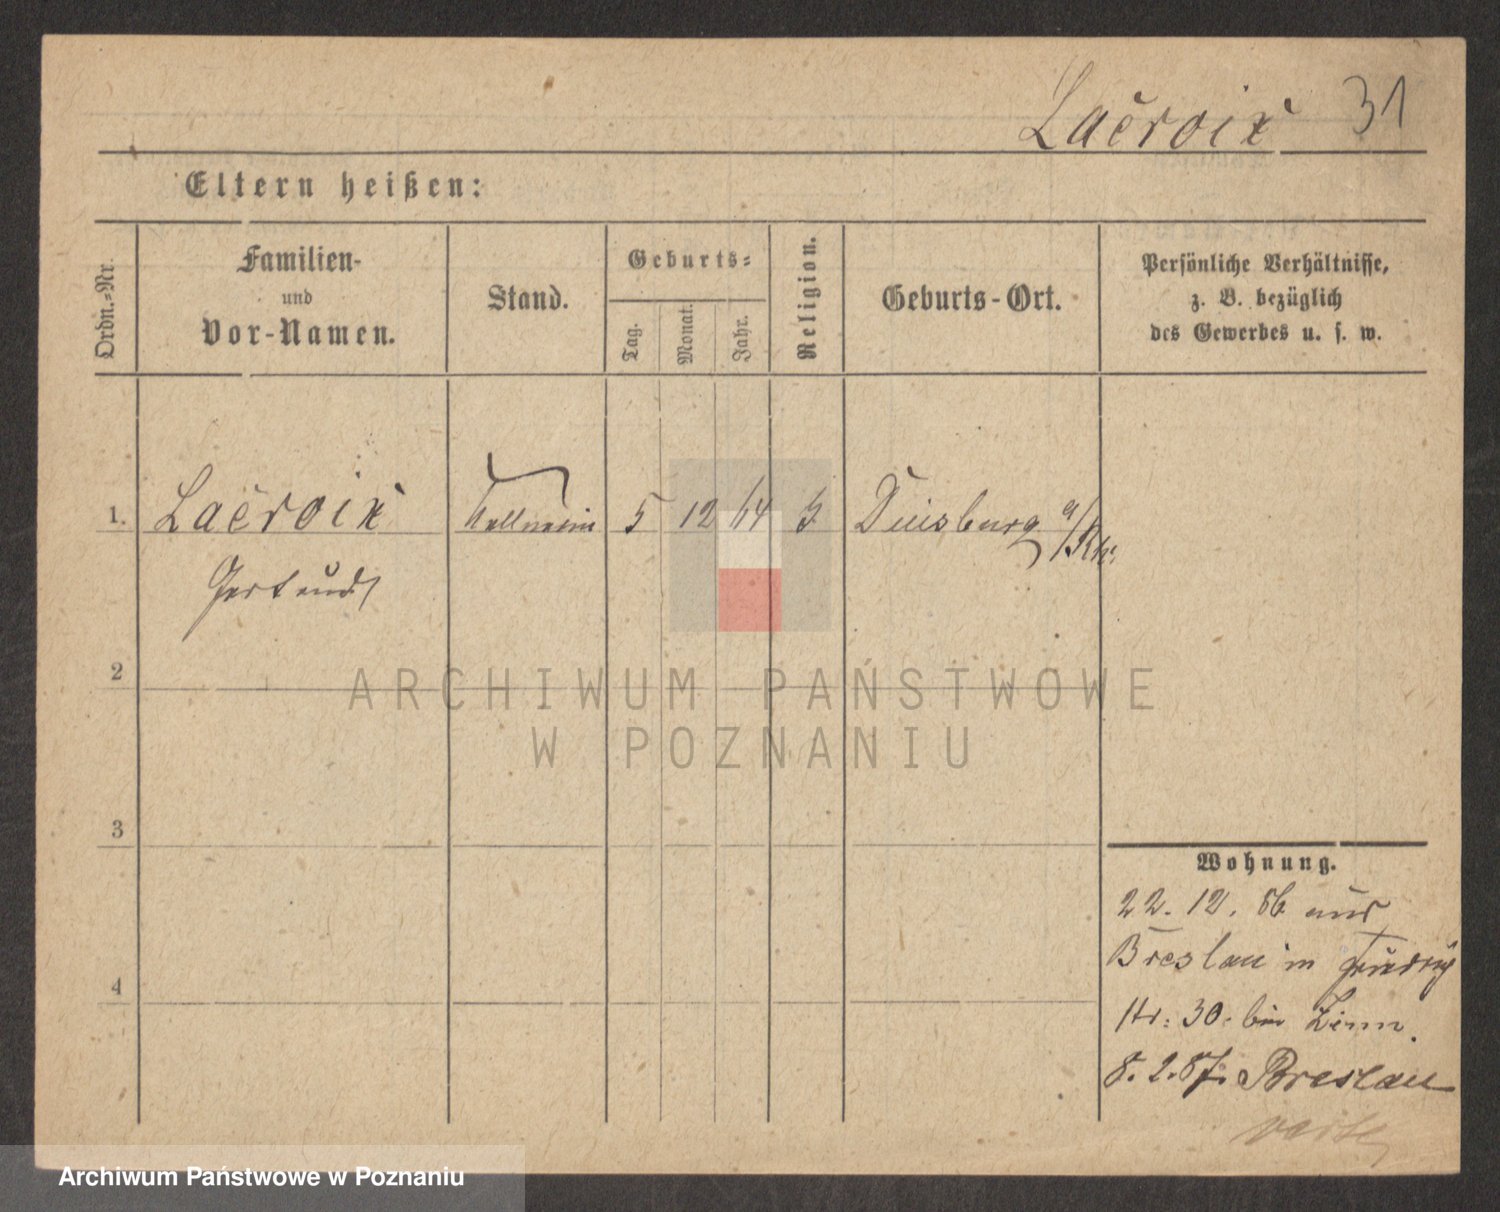 Lacroix 31
Eltern heißen:
Ordn.-Nr.
Familien-
und
Vor-Namen.
Stand.
Geburts-
Tag.
Monat.
Jahr.
Religion.
Geburts-Ort.
Persönliche Verhältnisse,
z. B. bezüglich
des Gewerbes u. s. w.
1. Lacroix Kellnerin 5 12 64 Duisburg a/Rh.
Gertrud
2
3
4
Wohnung.
22. 12. 86 aus
Breslau in Friedrich
Str. 30. bei
8. 2. 87. Breslau
ARCHIWUM PAŃSTWOWE
W POZNANIU
Archiwum Państwowe w Poznaniu